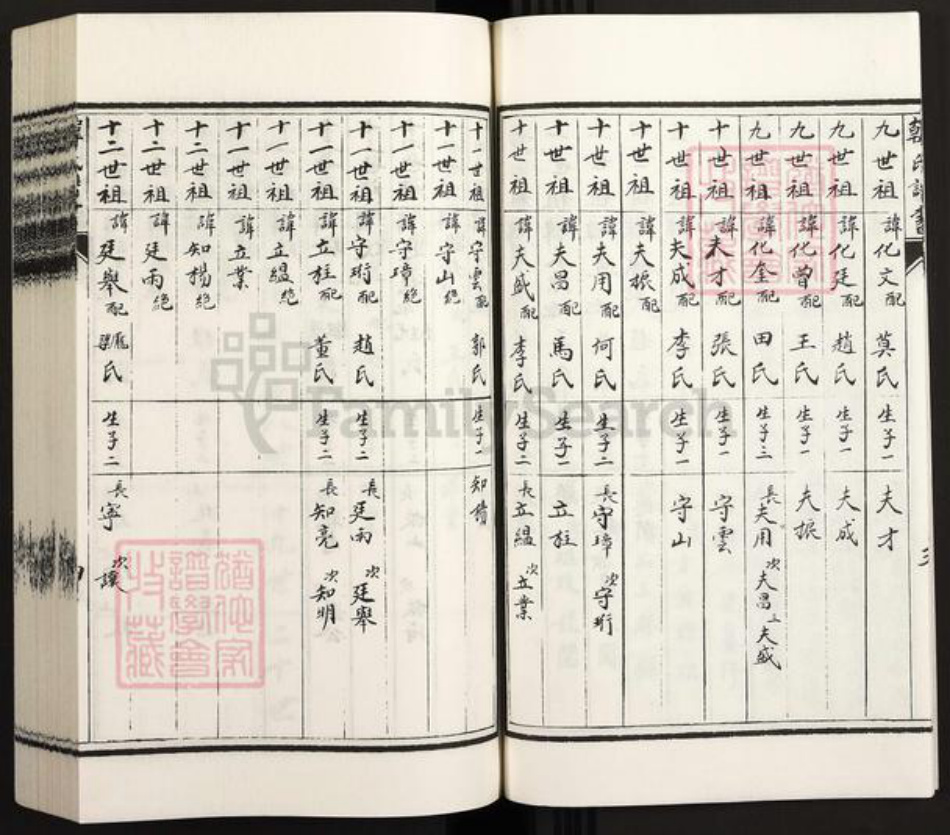 九世祖 諱化文配 莫氏 生子一 夫才
九世祖 諱化廷配 趙氏 生子一 夫成
九世祖 諱化曾配 王氏 生子一 夫振
九世祖 諱化奎配 田氏 生子三 長夫用 次夫昌 三夫盛
十世祖 諱夫才配 張氏 生子一 守雲
十世祖 諱夫成配 李氏 生子一 守山
十世祖 諱夫振配
十世祖 諱夫用配 何氏 生子二 長守璋 次守珩
十世祖 諱夫昌配 馬氏 生子一 立柱
十世祖 諱夫盛配 李氏 生子二 長立縕 次立業
十一世祖 諱守雲配 郭氏 生子一 知楊
十一世祖 諱守山絶
十一世祖 諱守璋絶
十一世祖 諱守珩配 趙氏 生子二 長廷雨 次廷舉
十一世祖 諱立柱配 董氏 生子二 長知亮 次知明
十一世祖 諱立縕絶
十一世祖 諱立業
十二世祖 諱知楊絶
十二世祖 諱廷雨絶
十二世祖 諱廷舉配 氏 生子二 長寧 次讓
FamilySearch
猶他家
譜學會
收藏